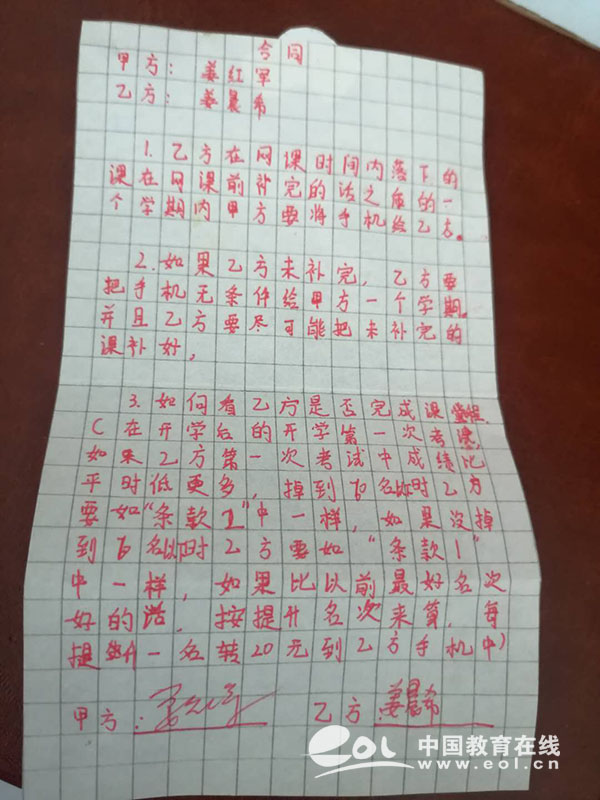 合同
甲方：姜红军
乙方：姜晨希
1.乙方在网课时间内落下的
课在网课前补完的话之后的一
个学期内甲方要将手机给乙方。
2.如果乙方未补完，乙方要
把手机无条件给甲方一个学期。
并且乙方要尽可能把未补完的
课补好。
3.如何看乙方是否完成课堂
(在开学后的开学第一次考试
如果乙方第一次考试中成绩比
平时低更多，掉到 名 时乙方
要如“条款2”中一样，如果没掉
到 名 时乙方要如“条款1”
中一样，如果比以前最好名次
好的话，按提升名次来算，每
提升一名转20元到乙方手机中)
甲方： 乙方：姜晨希
eol 中国教育在线
www.eol.cn